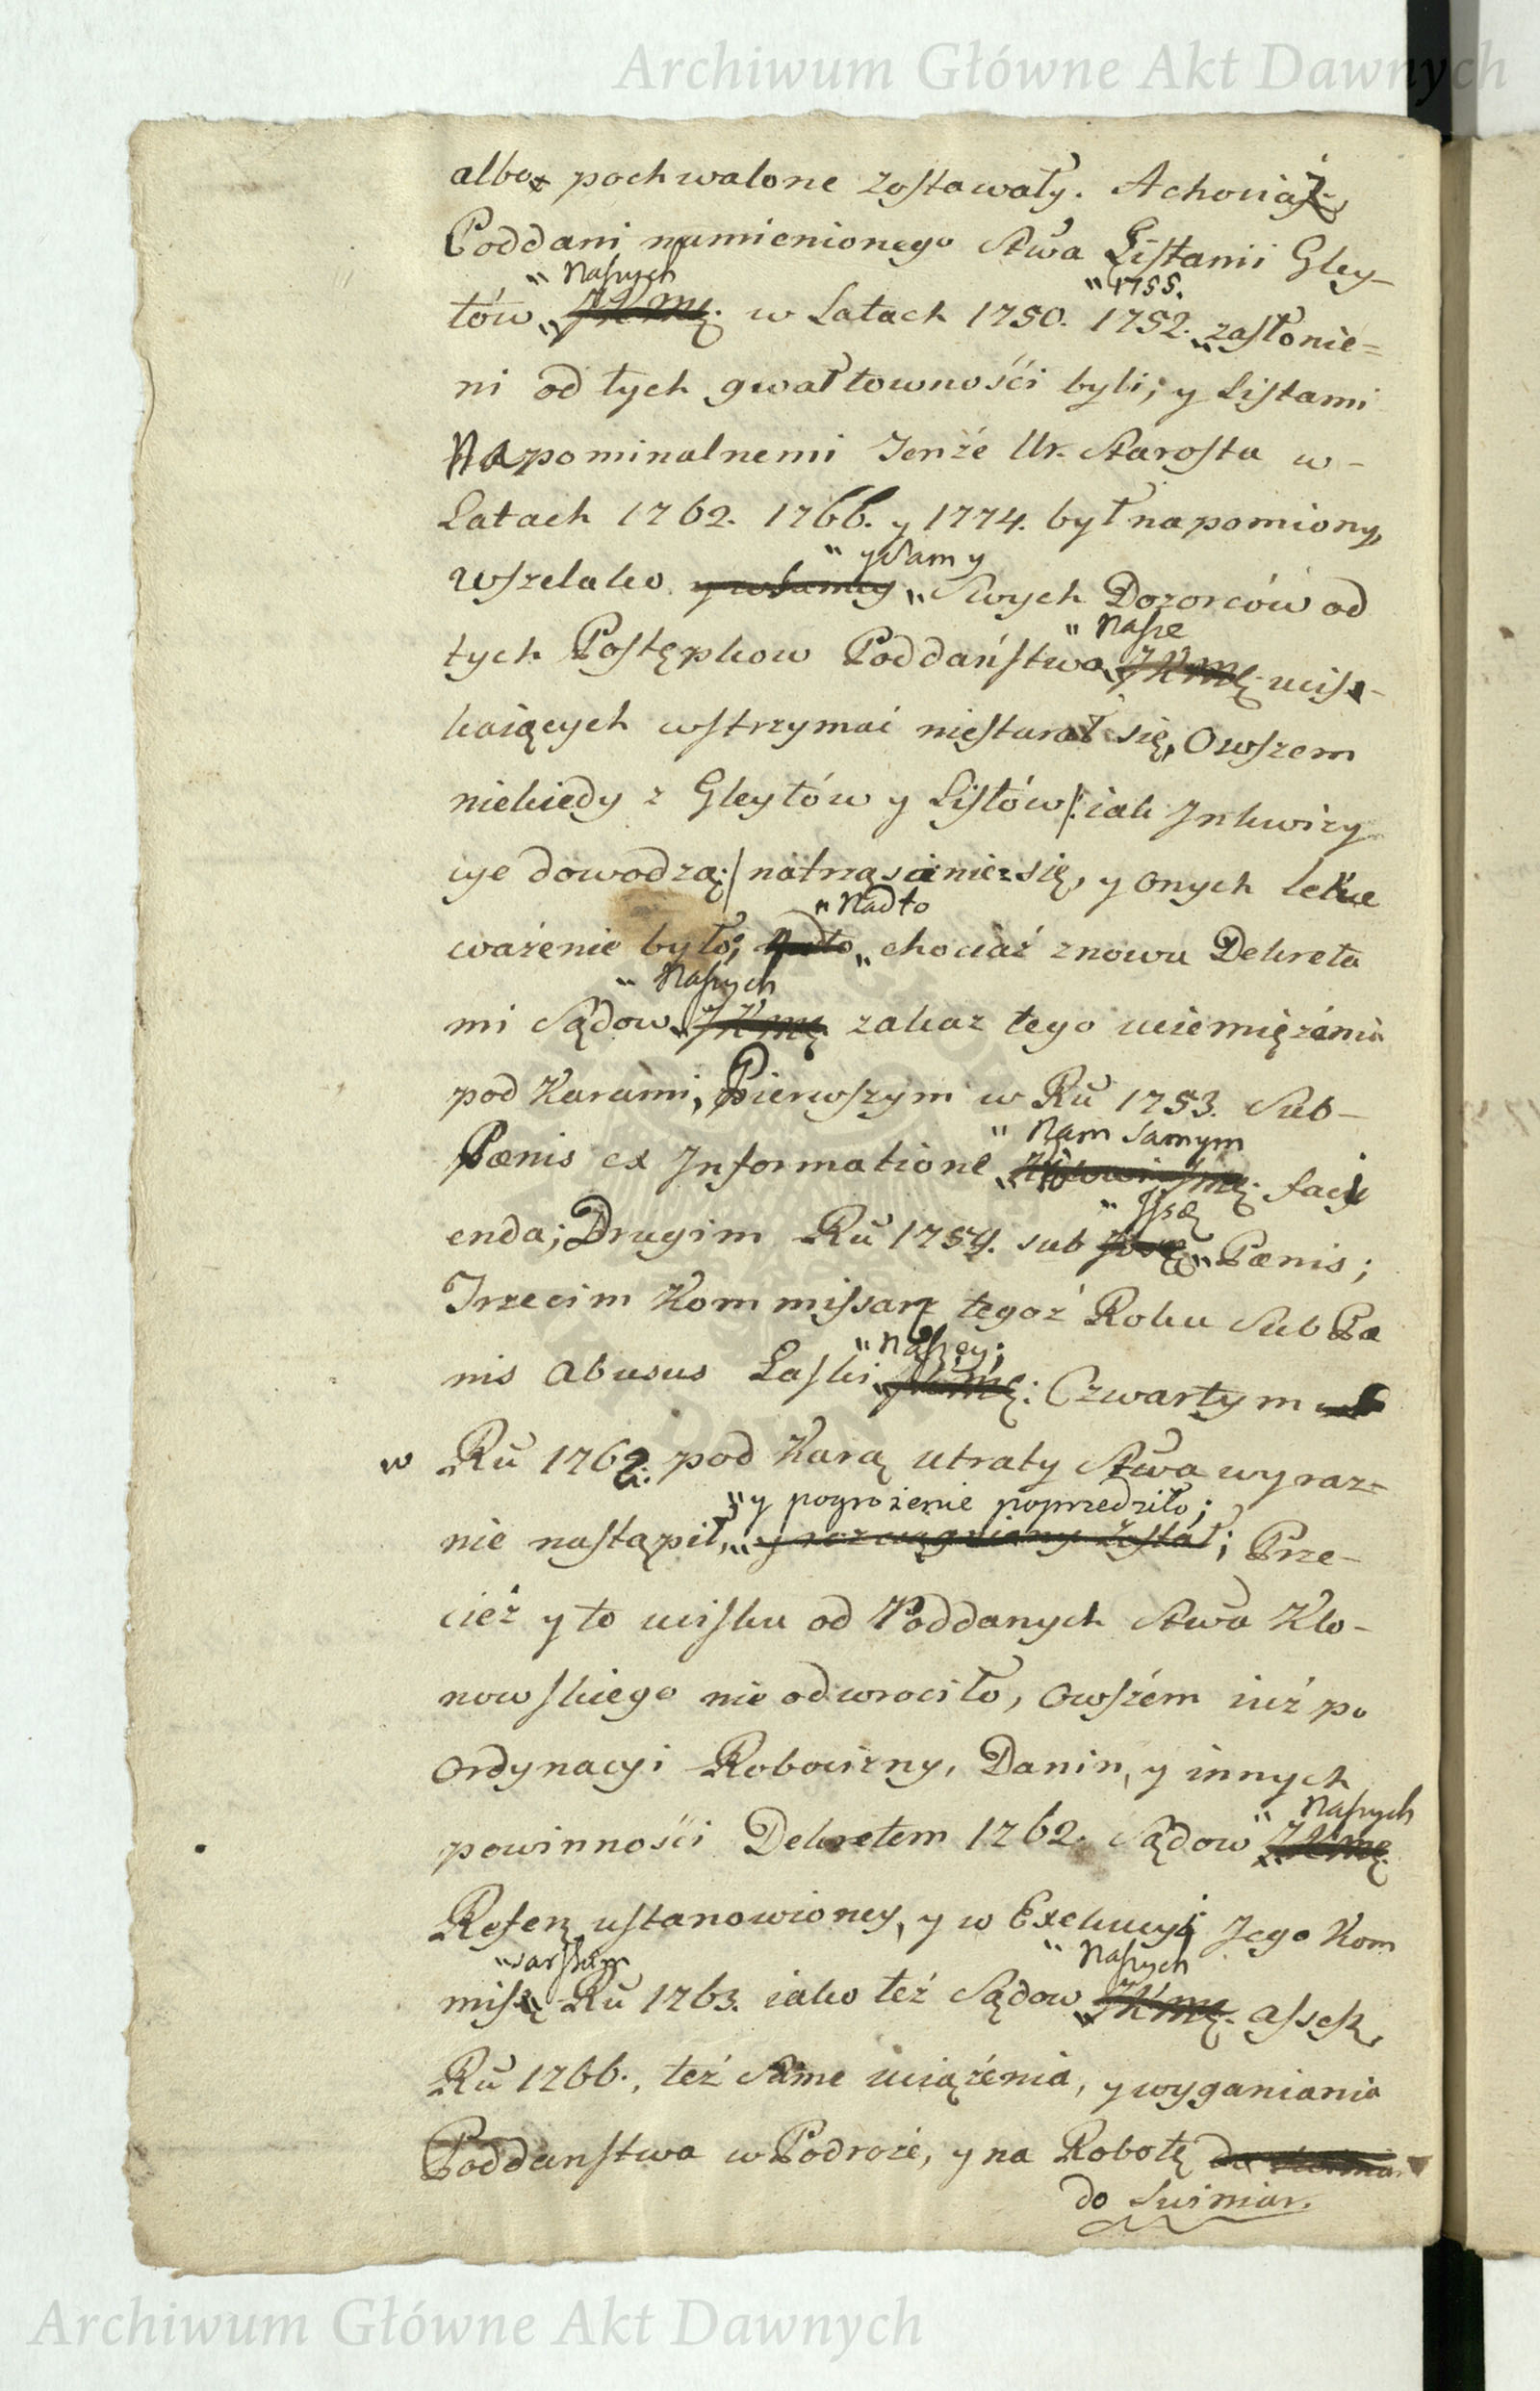 Archiwum Główne Akt Dawnych
albo pochwalone zostawały. A chociaż
Poddani namienionego Stwa Listami Gley-
" Naszych " 1755.
tów JKMę. w Latach 1750. 1752. zasłonie=
ni od tych gwałtownośći byli; y Listami
Napominalnemi Tenże Ur. Starosta w-
Latach 1762. 1766. y 1774. był napomiony,
" y Samy
wszelako Swych Dozorców od
" Nasze
tych Postępkow Poddaństwo JKMę. ucis-
kaiących wstrzymać niestarał się, Owszem
niekiedy z Gleytów y Listów /: iak Inkwizy
cye dowodzą :/ natrząsanie się, y onych lekce
" Nadto
ważenie było; Nadto chociaż znowu Dekreta
" Naszych
mi Sądow JKMę. zakaz tego uciemięźenia
pod Karami, Pierwszym w Ru 1753. Sub-
" Nam samym
Pœnis ex Informatione faci
enda; Drugim Ru 1754. sub Pœnis;
Trzecim Kommissar tegoż Roku Sub Pœ
" Naszey;
nis Abusus Laski JKMę: Czwartym
w Ru 1762. pod Karą utraty Stwa wyraz-
" y pogrożenie poprzedziło;
nie nastąpił, y rozciągniony został; Prze-
cież y to ucisku od Poddanych Stwa Klo-
nowskiego nie odwrociło, Owszém iuż po
Ordynacyi Robocizny, Danin, y innych
" Naszych
powinnośći Dekretem 1762. Sądow JKMę.
Refer. ustanowioney, y w Exekucyi Jego Kom
" sarskim " Naszych
mis Ru 1763. iako też Sądow JKMę. Assess.
Ru 1766., też Same uciążénia, y wyganiania
Poddanstwa w Podroże, y na Robotę
do Suśniar.
Archiwum Główne Akt Dawnych